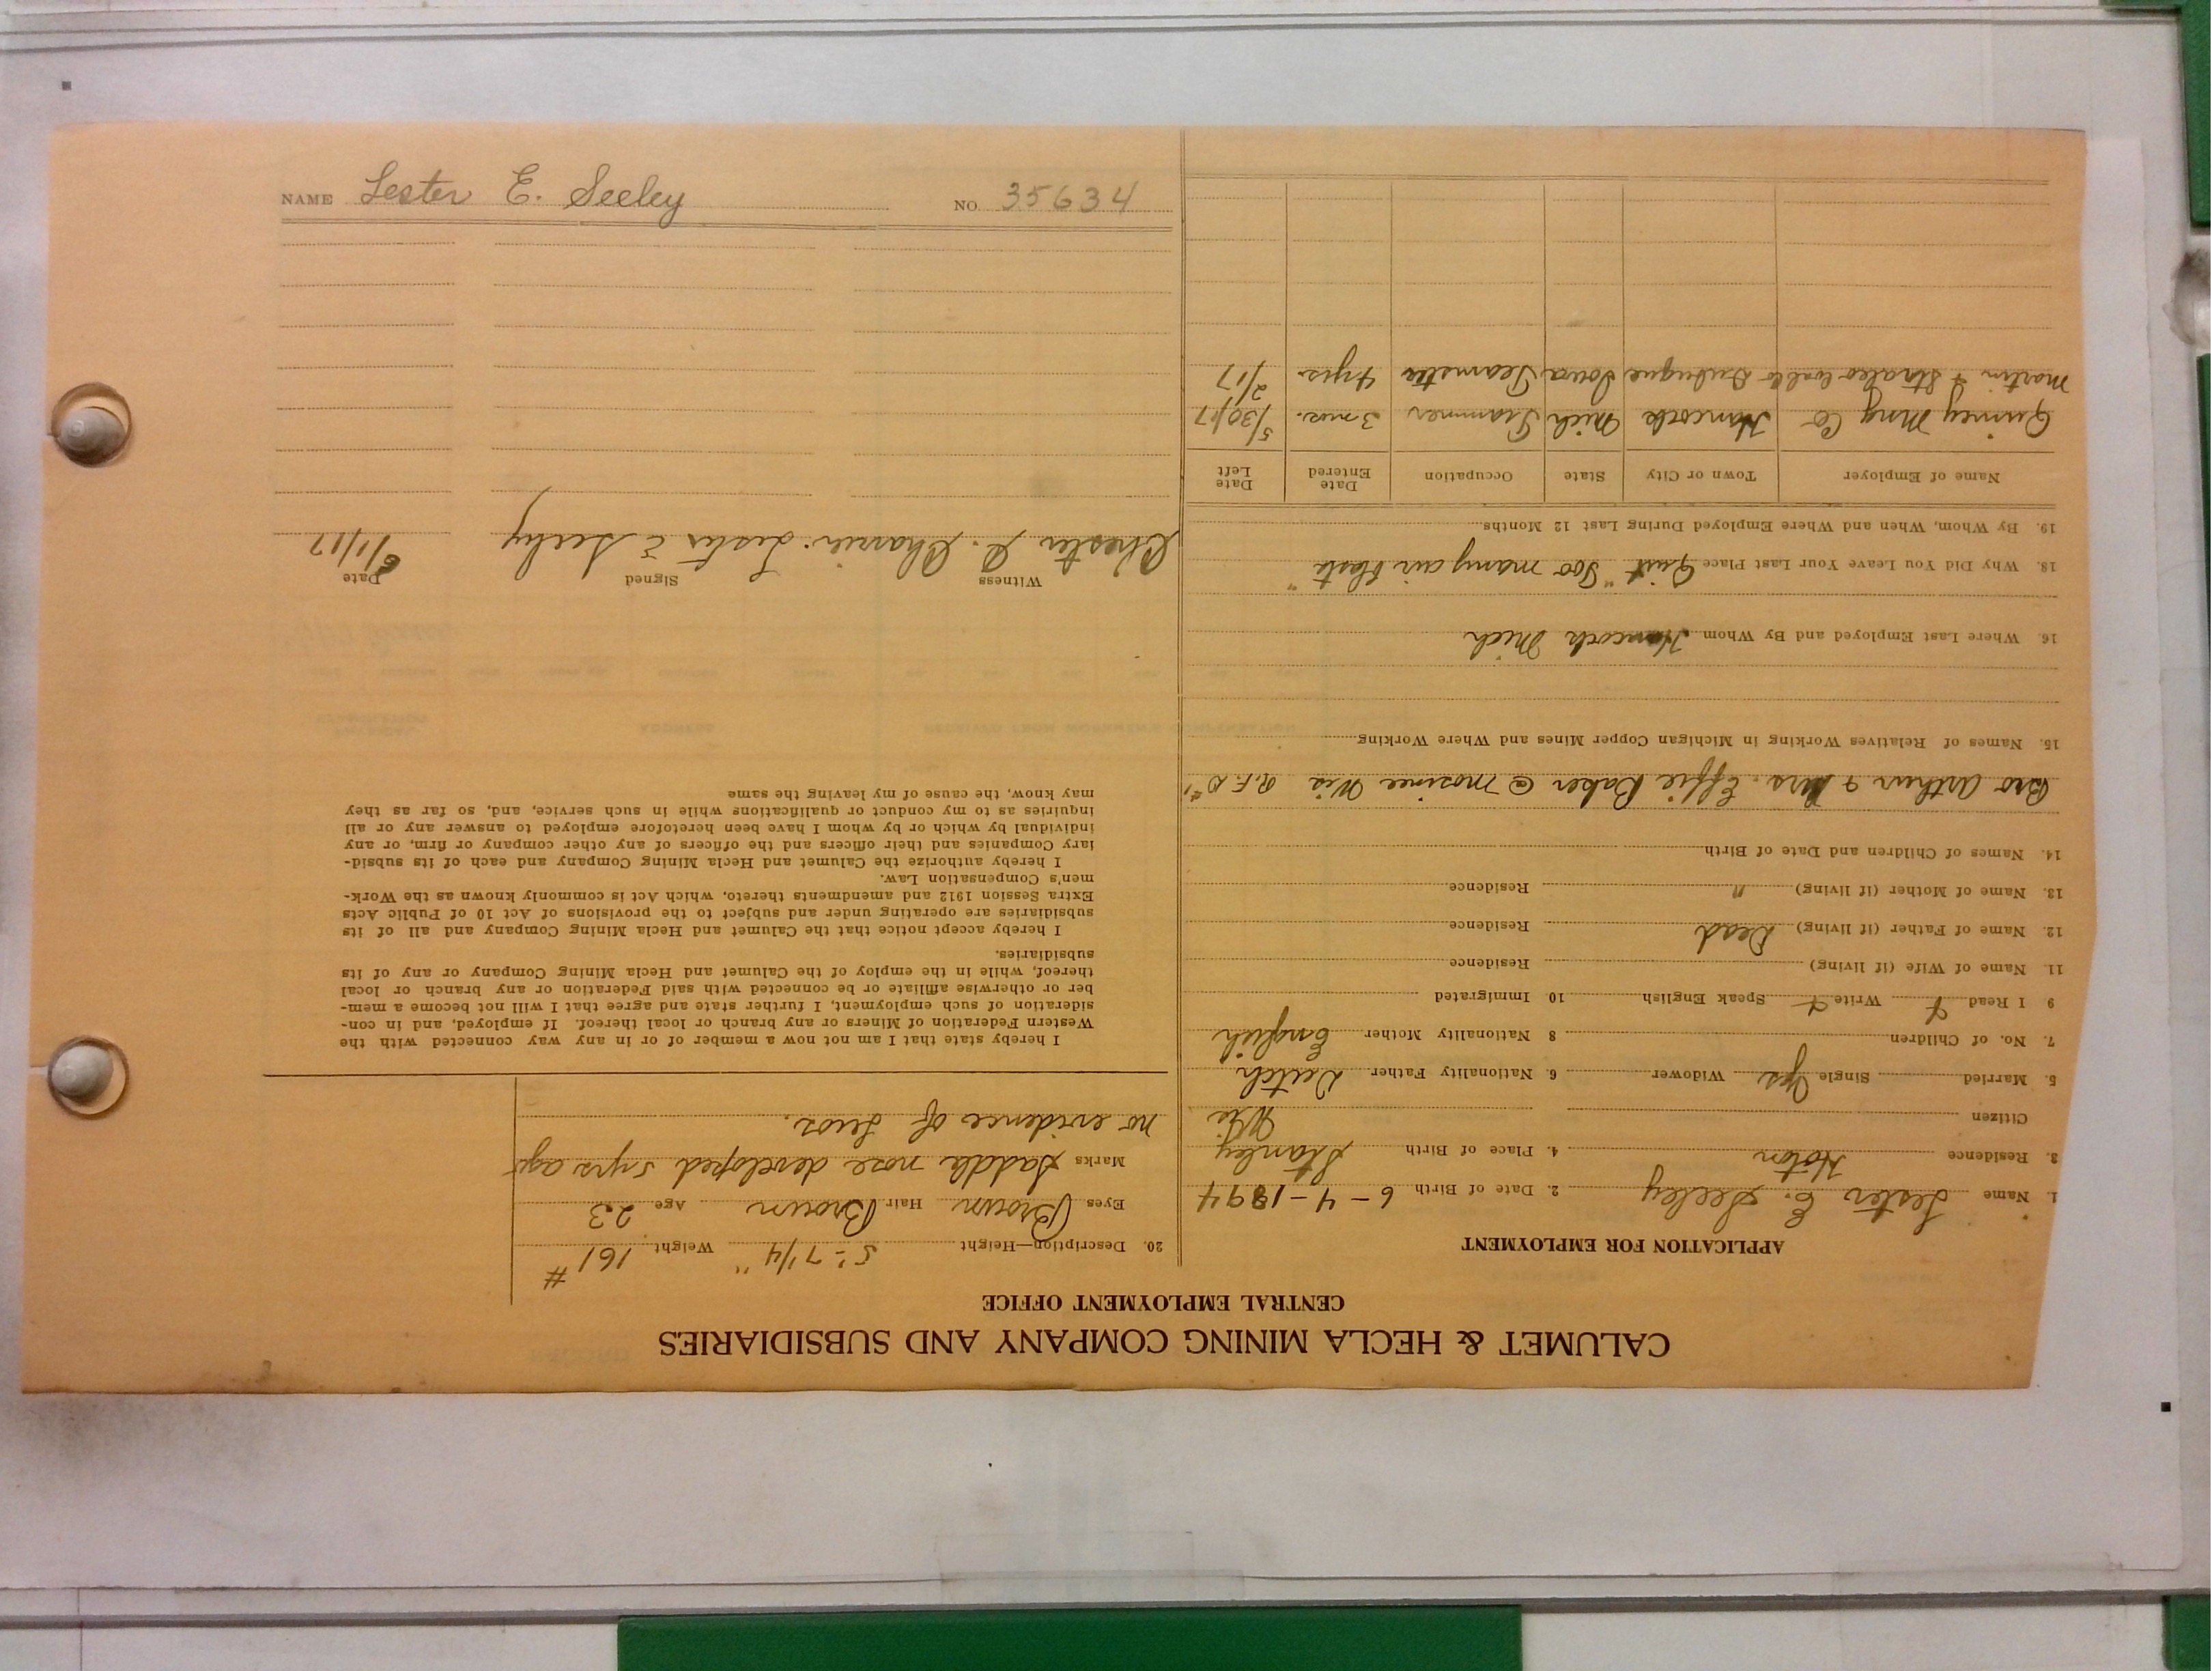 CALUMET & HECLA MINING COMPANY AND SUBSIDIARIES
CENTRAL EMPLOYMENT OFFICE
APPLICATION FOR EMPLOYMENT
1. Name Lester E. Seeley 2. Date of Birth 6-4-1894
3. Residence Hoton 4. Place of Birth Stanley
Citizen Wis
5. Married Single Yes Widower 6. Nationality Father Dutch
7. No. of Children 8 Nationality Mother English
9 I Read Write Speak English 10 Immigrated
11. Name of Wife (if living) Residence
12. Name of Father (if living) Dead Residence
13. Name of Mother (if living) " Residence
14. Names of Children and Date of Birth
Bro Arthur & Mrs. Effie Baker @ Mosinee Wis R.F.D #1
15. Names of Relatives Working in Michigan Copper Mines and Where Working
16. Where Last Employed and By Whom Hancock Mich
18. Why Did You Leave Your Last Place Quit "Too many air blasts"
19. By Whom, When and Where Employed During Last 12 Months
Name of Employer Town or City State Occupation Date Entered Date Left
Quincy Mng Co Hancock Mich Trammer 3 mos. 5/30/17
Martin & Dubuque Iowa Teamster 4 yrs 2/17
20. Description—Height 5'-7 1/4" Weight 161#
Eyes Brown Hair Brown Age 23
Marks Saddle nose developed 5 yrs ago
no evidence of Lues.
I hereby state that I am not now a member of or in any way connected with the
Western Federation of Miners or any branch or local thereof. If employed, and in con-
sideration of such employment, I further state and agree that I will not become a mem-
ber or otherwise affiliate or be connected with said Federation or any branch or local
thereof, while in the employ of the Calumet and Hecla Mining Company or any of its
subsidiaries.
I hereby accept notice that the Calumet and Hecla Mining Company and all of its
subsidiaries are operating under and subject to the provisions of Act 10 of Public Acts
Extra Session 1912 and amendments thereto, which Act is commonly known as the Work-
men's Compensation Law.
I hereby authorize the Calumet and Hecla Mining Company and each of its subsid-
iary Companies and their officers and the officers of any other company or firm, or any
individual by which or by whom I have been heretofore employed to answer any or all
inquiries as to my conduct or qualifications while in such service, and, so far as they
may know, the cause of my leaving the same
Witness Signed Date
Chester Lester E Seeley 6/1/17
NAME Lester E. Seeley NO. 35634